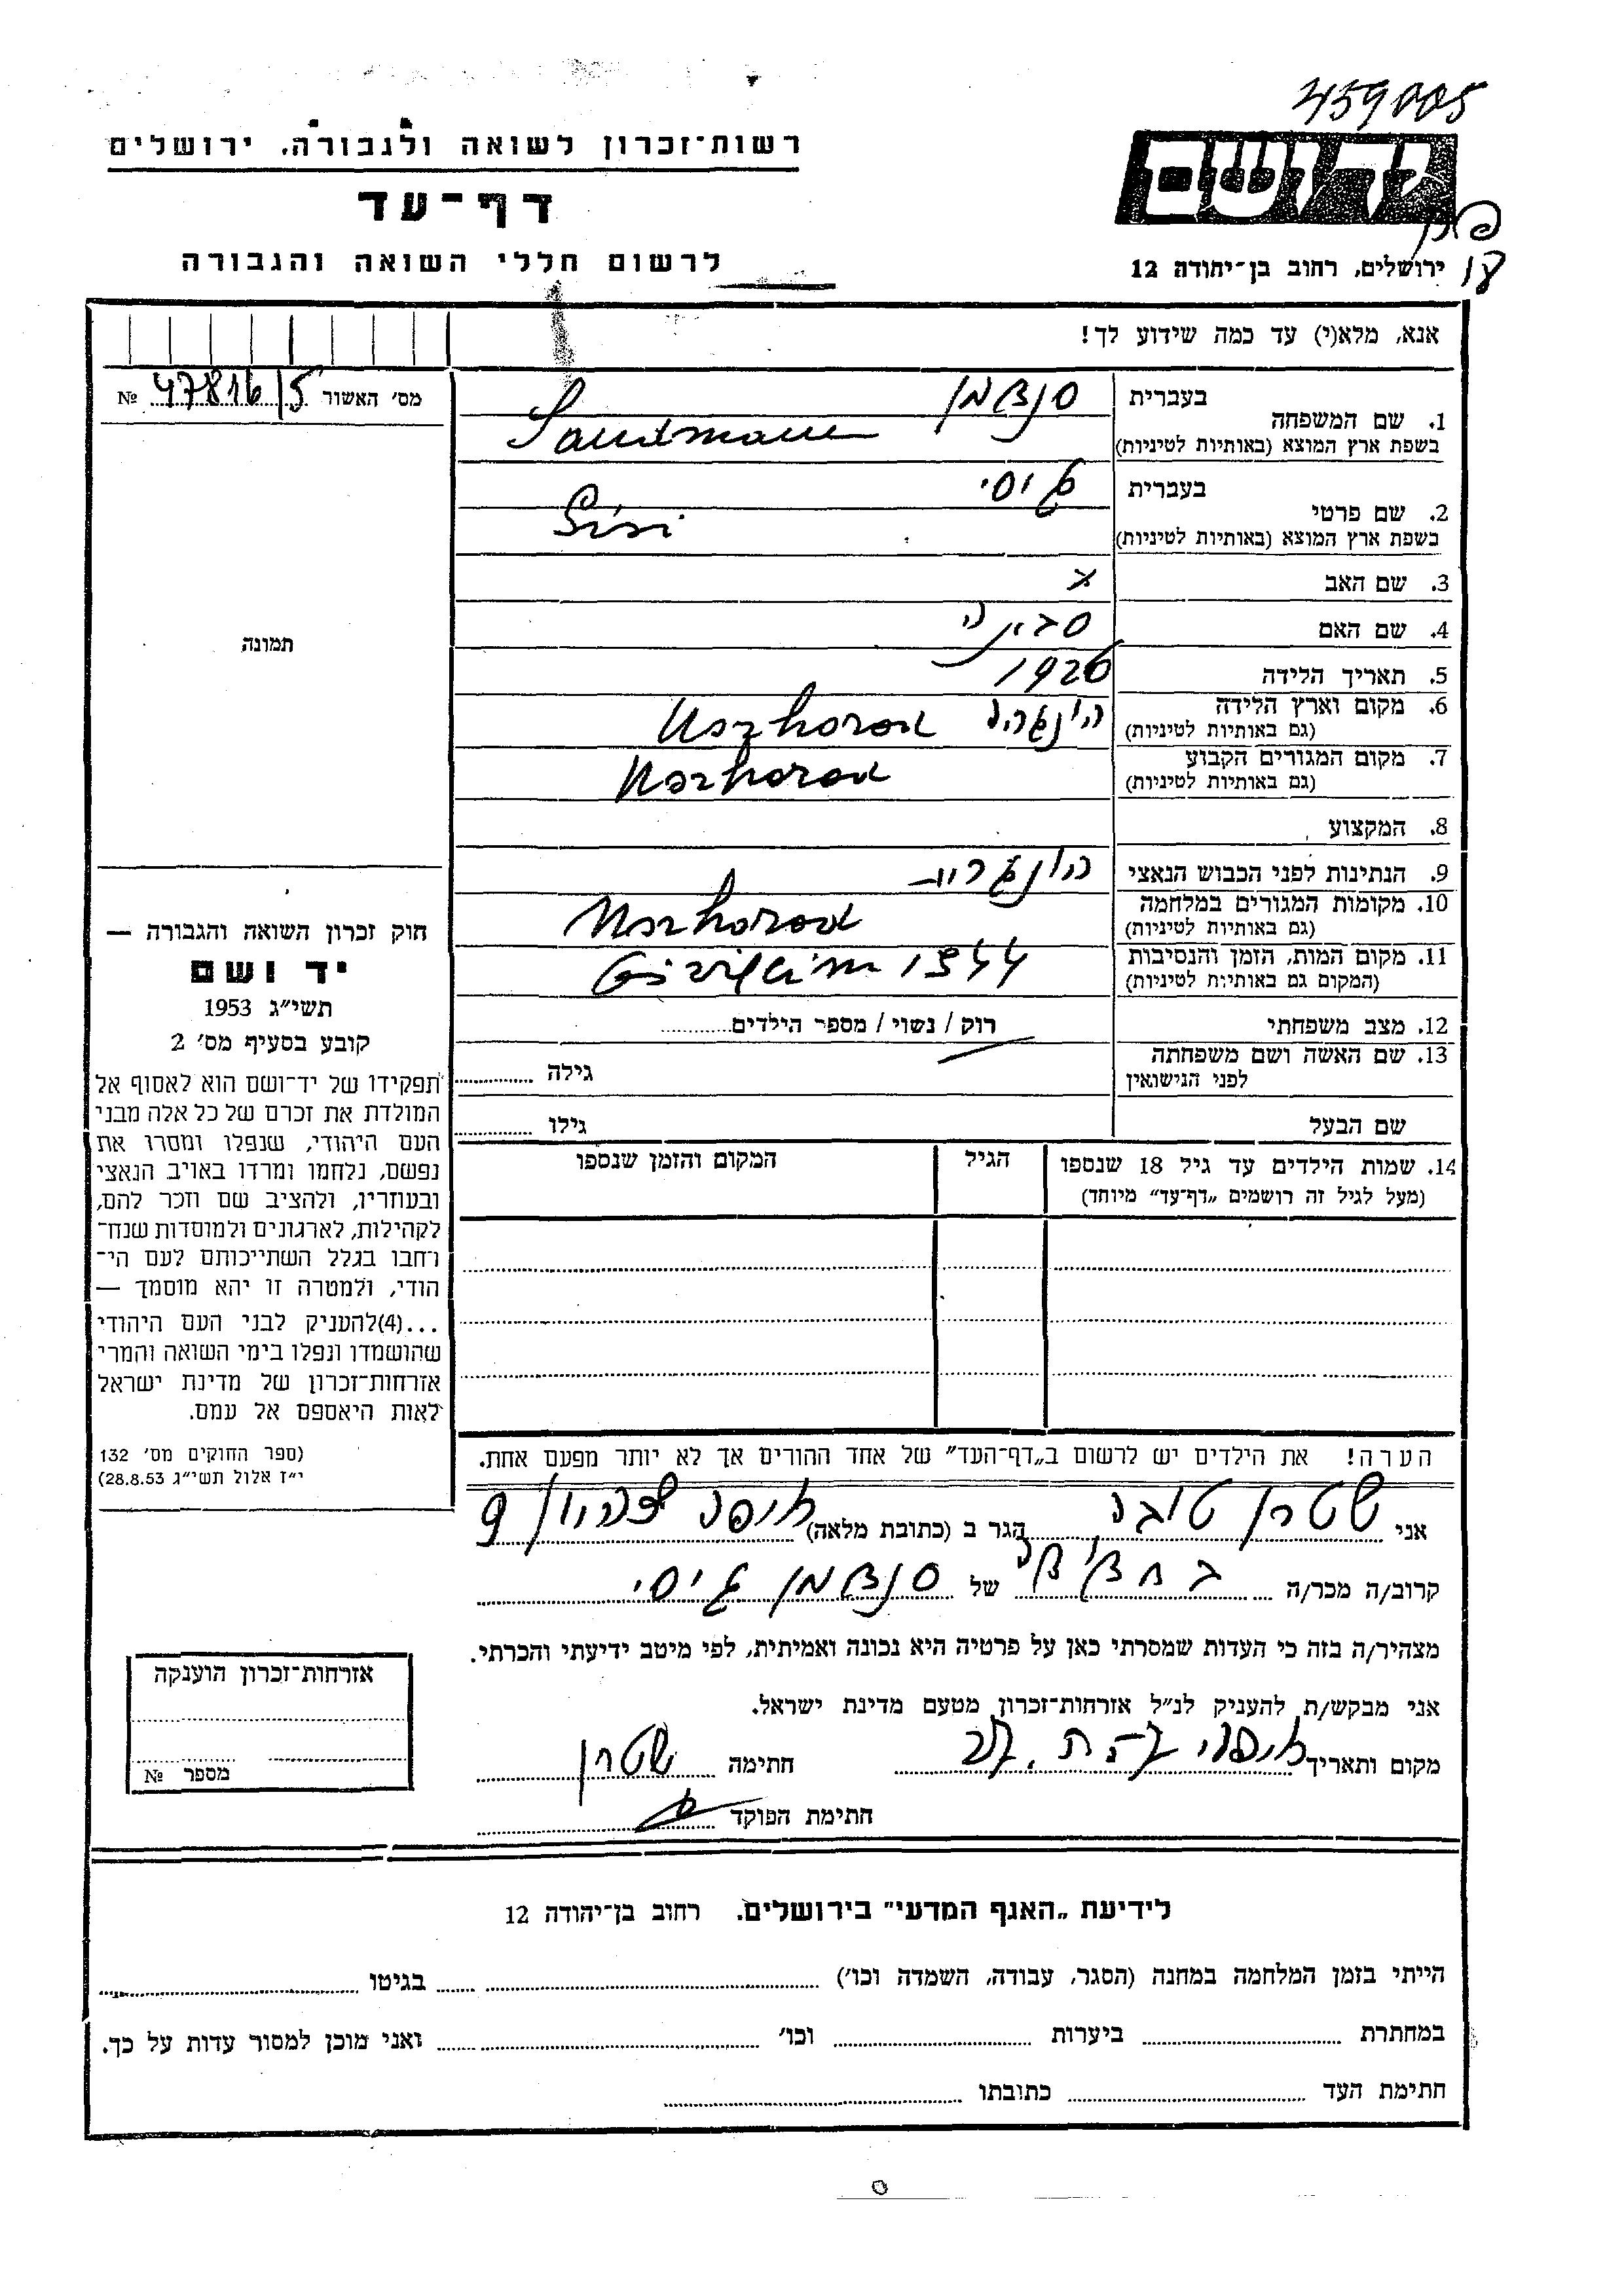 459005
רשות־זכרון לשואה ולגבורה. ירושלים
יד ושם
דף־עד
לרשום חללי השואה והגבורה
ירושלים, רחוב בן־יהודה 12
אנא, מלא(י) עד כמה שידוע לך!
מס׳ האשור 47816/5 №
תמונה
1. שם המשפחה
בעברית סנדמן
בשפת ארץ המוצא (באותיות לטיניות) Sandmann
2. שם פרטי
בעברית גיסי
בשפת ארץ המוצא (באותיות לטיניות)
3. שם האב x
4. שם האם
5. תאריך הלידה 1926
6. מקום וארץ הלידה
(גם באותיות לטיניות) Uszhorod
7. מקום המגורים הקבוע
(גם באותיות לטיניות) Uszhorod
8. המקצוע
9. הנתינות לפני הכבוש הנאצי
10. מקומות המגורים במלחמה
(גם באותיות לטיניות) Uszhorod
11. מקום המות, הזמן והנסיבות
(המקום גם באותיות לטיניות) 1944
12. מצב משפחתי רוק / נשוי / מספר הילדים
13. שם האשה ושם משפחתה
לפני הנישואין גילה
שם הבעל גילו
14. שמות הילדים עד גיל 18 שנספו הגיל המקום והזמן שנספו
(מעל לגיל זה רושמים „דף־עד” מיוחד)
חוק זכרון השואה והגבורה —
יד ושם
תשי״ג 1953
קובע בסעיף מס׳ 2
תפקידו של יד־ושם הוא לאסוף אל
המולדת את זכרם של כל אלה מבני
העם היהודי, שנפלו ומסרו את
נפשם, נלחמו ומרדו באויב הנאצי
ובעוזריו, ולהציב שם וזכר להם,
לקהילות, לארגונים ולמוסדות שנח־
רחבו בגלל השתייכותם לעם הי־
הודי, ולמטרה זו יהא מוסמך —
...(4)להעניק לבני העם היהודי
שהושמדו ונפלו בימי השואה והמרי
אזרחות־זכרון של מדינת ישראל
לאות היאספם אל עמם.
(ספר החוקים מס׳ 132
י״ז אלול תשי״ג 28.8.53)
הערה! את הילדים יש לרשום ב„דף־העד” של אחד ההורים אך לא יותר מפעם אחת.
אני שטרן טובה הגר ב (כתובת מלאה)
קרוב/ה מכר/ה של סנדמן גיסי
מצהיר/ה בזה כי העדות שמסרתי כאן על פרטיה היא נכונה ואמיתית, לפי מיטב ידיעתי והכרתי.
אני מבקש/ת להעניק לנ״ל אזרחות־זכרון מטעם מדינת ישראל.
מקום ותאריך חתימה שטרן
חתימת הפוקד
אזרחות־זכרון הוענקה
מספר №
לידיעת „האגף המדעי” בירושלים. רחוב בן־יהודה 12
הייתי בזמן המלחמה במחנה (הסגר, עבודה, השמדה וכו׳) בגיטו
במחתרת ביערות וכו׳ ואני מוכן למסור עדות על כך.
חתימת העד כתובתו